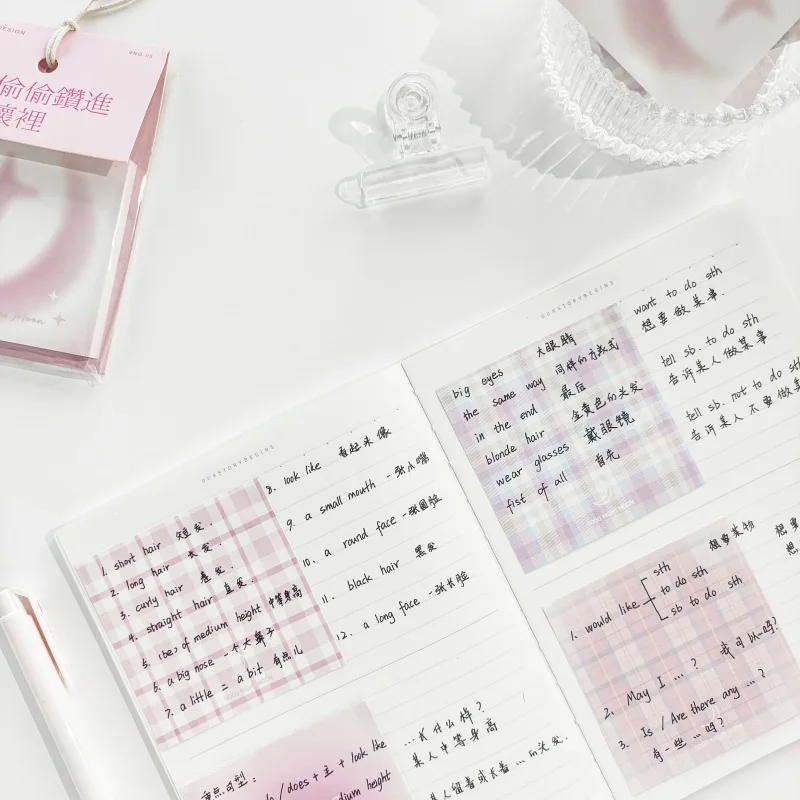 DESIGN
偷偷鑽進
懷裡
Moon
OURSTORYBEGINS
1. short hair 短发.
2. long hair 长发.
3. curly hair 卷发.
4. straight hair 直发.
5. (be) of medium height 中等身高
6. a big nose 一个大鼻子
7. a little = a bit 有点儿
8. look like 看起来像
9. a small mouth 一张小嘴
10. a round face 一张圆脸
11. black hair 黑发
12. a long face 一张长脸
重点句型:
/does + 主 + look like
medium height
...长什么样?
某人中等身高
某人留着或长着...的头发.
OURSTORYBEGINS
big eyes 大眼睛
the same way 同样的方式
in the end 最后
blonde hair 金黄色的头发
wear glasses 戴眼镜
fist of all 首先
want to do sth
想要做某事.
tell sb. to do sth
告诉某人做某事
tell sb. not to do sth
告诉某人不要做某
想要某物
1. would like sth
to do sth
sb to do sth
2. May I ...? 我可以...吗?
3. Is / Are there any ...?
有一些...吗?